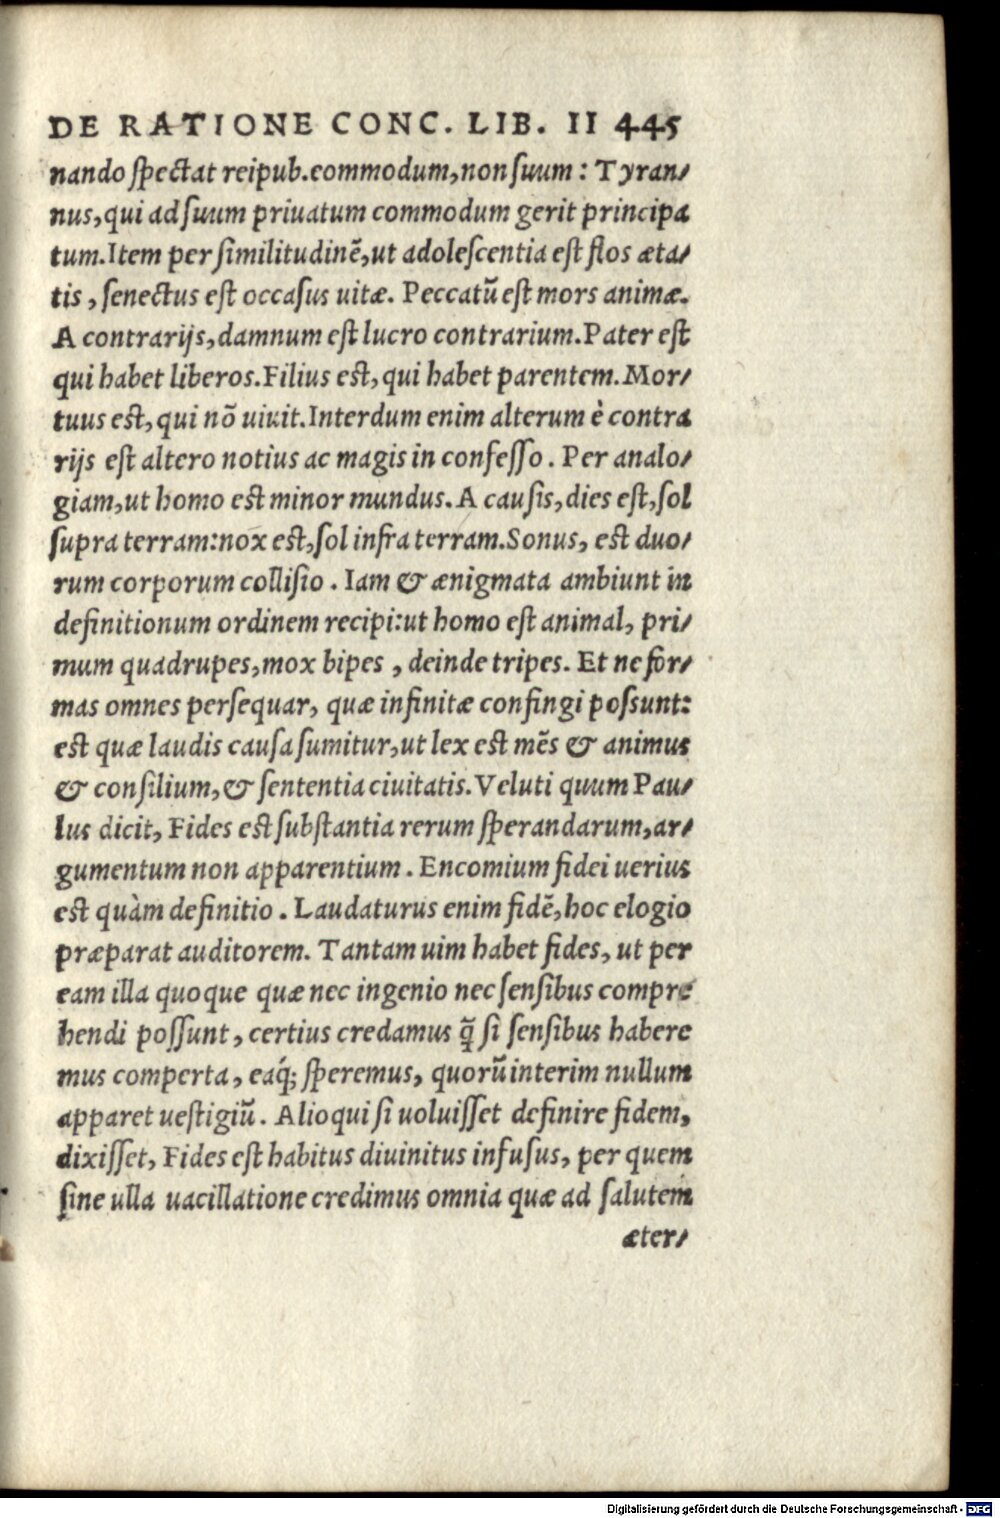 DE RATIONE CONC. LIB. II 445
nando ſpectat reipub.commodum,non ſuum : Tyran/
nus,qui ad ſuum priuatum commodum gerit principa
tum.Item per ſimilitudinẽ,ut adoleſcentia eſt flos æta/
tis , ſenectus eſt occaſus uitæ. Peccatũ eſt mors animæ.
A contrarijs,damnum eſt lucro contrarium.Pater eſt
qui habet liberos.Filius eſt,qui habet parentem.Mor/
tuus est, qui nõ uiuit.Interdum enim alterum è contra
rijs est altero notius ac magis in confeſſo . Per analo/
giam,ut homo est minor mundus. A cauſis,dies eſt,ſol
ſupra terram:nox est,ſol infra terram.Sonus, est duo/
rum corporum colliſio . Iam & ænigmata ambiunt in
definitionum ordinem recipi:ut homo eſt animal, pri/
mum quadrupes,mox bipes , deinde tripes. Et ne for/
mas omnes perſequar, quæ infinitæ confingi poſſunt:
est quæ laudis cauſa ſumitur,ut lex est mẽs & animus
& conſilium,& ſententia ciuitatis.Veluti quum Pau/
lus dicit, Fides est ſubſtantia rerum ſperandarum,ar/
gumentum non apparentium . Encomium fidei uerius
est quàm definitio . Laudaturus enim fidẽ,hoc elogio
præparat auditorem. Tantam uim habet fides, ut per
eam illa quoque quæ nec ingenio nec ſenſibus compre
hendi poſſunt , certius credamus q̃ ſi ſenſibus habere
mus comperta , eaq́; ſperemus, quorũ interim nullum
apparet ueſtigiũ . Alioqui ſi uoluiſſet definire fidem,
dixiſſet, Fides eſt habitus diuinitus infuſus, per quem
ſine ulla uacillatione credimus omnia quæ ad ſalutem
æter/
Digitalisierung gefördert durch die Deutsche Forschungsgemeinschaft - DFG